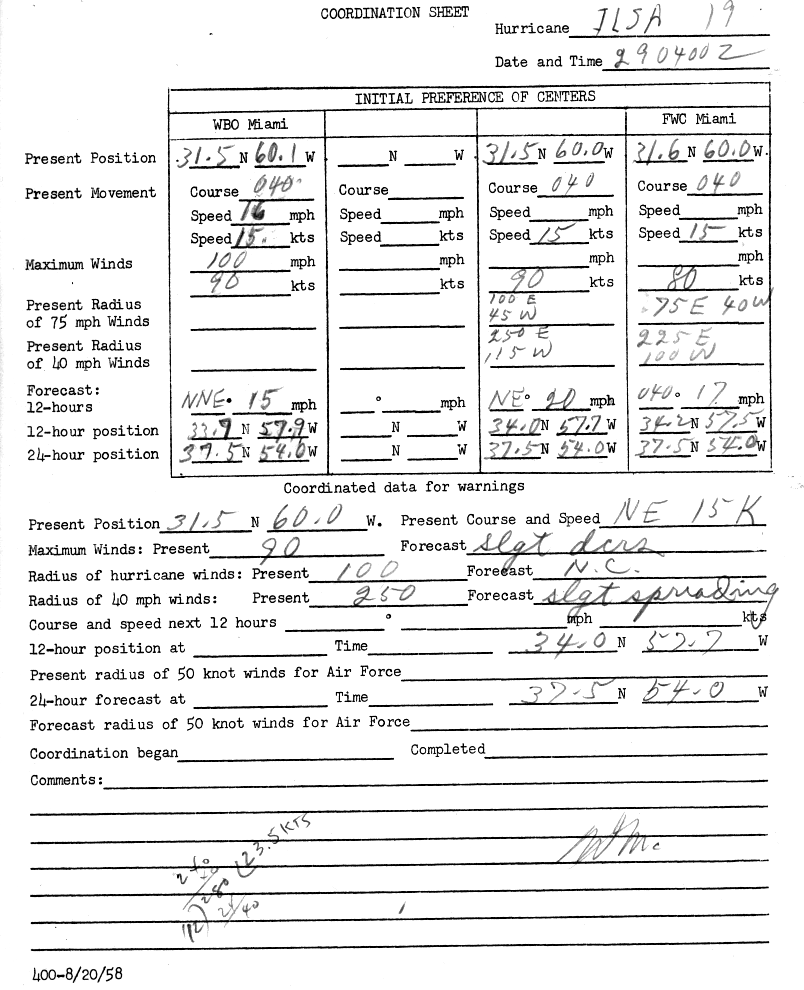 COORDINATION SHEET
Hurricane ILSA 19
Date and Time 290400Z
INITIAL PREFERENCE OF CENTERS
WBO Miami FWC Miami
Present Position 31.5 N 60.1 W N W 31.5 N 60.0 W 31.6 N 60.0 W.
Present Movement Course 040 Course Course 040 Course 040
Speed 16 mph Speed mph Speed mph Speed mph
Speed 15. kts Speed kts Speed 15 kts Speed 15 kts
Maximum Winds 100 mph mph mph mph
90 kts kts 90 kts 80 kts
Present Radius of 75 mph Winds 100 E 45 W 75 E 40 W
Present Radius of 40 mph Winds 250 E 115 W 225 E 100 W
Forecast:
12-hours NNE° 15 mph ° mph NE° 20 mph 040° 17 mph
12-hour position 33.9 N 57.9 W N W 34.0 N 57.7 W 34.2 N 57.5 W
24-hour position 37.5 N 54.0 W N W 37.5 N 54.0 W 37.5 N 54.0 W
Coordinated data for warnings
Present Position 31.5 N 60.0 W. Present Course and Speed NE 15 K
Maximum Winds: Present 90 Forecast slgt dcrs
Radius of hurricane winds: Present 100 Forecast N.C.
Radius of 40 mph winds: Present 250 Forecast slgt spreading
Course and speed next 12 hours ° mph kts
12-hour position at Time 34.0 N 57.7 W
Present radius of 50 knot winds for Air Force
24-hour forecast at Time 37.5 N 54.0 W
Forecast radius of 50 knot winds for Air Force
Coordination began Completed
Comments:
23.5 KTS
280
12
24
40
400-8/20/58